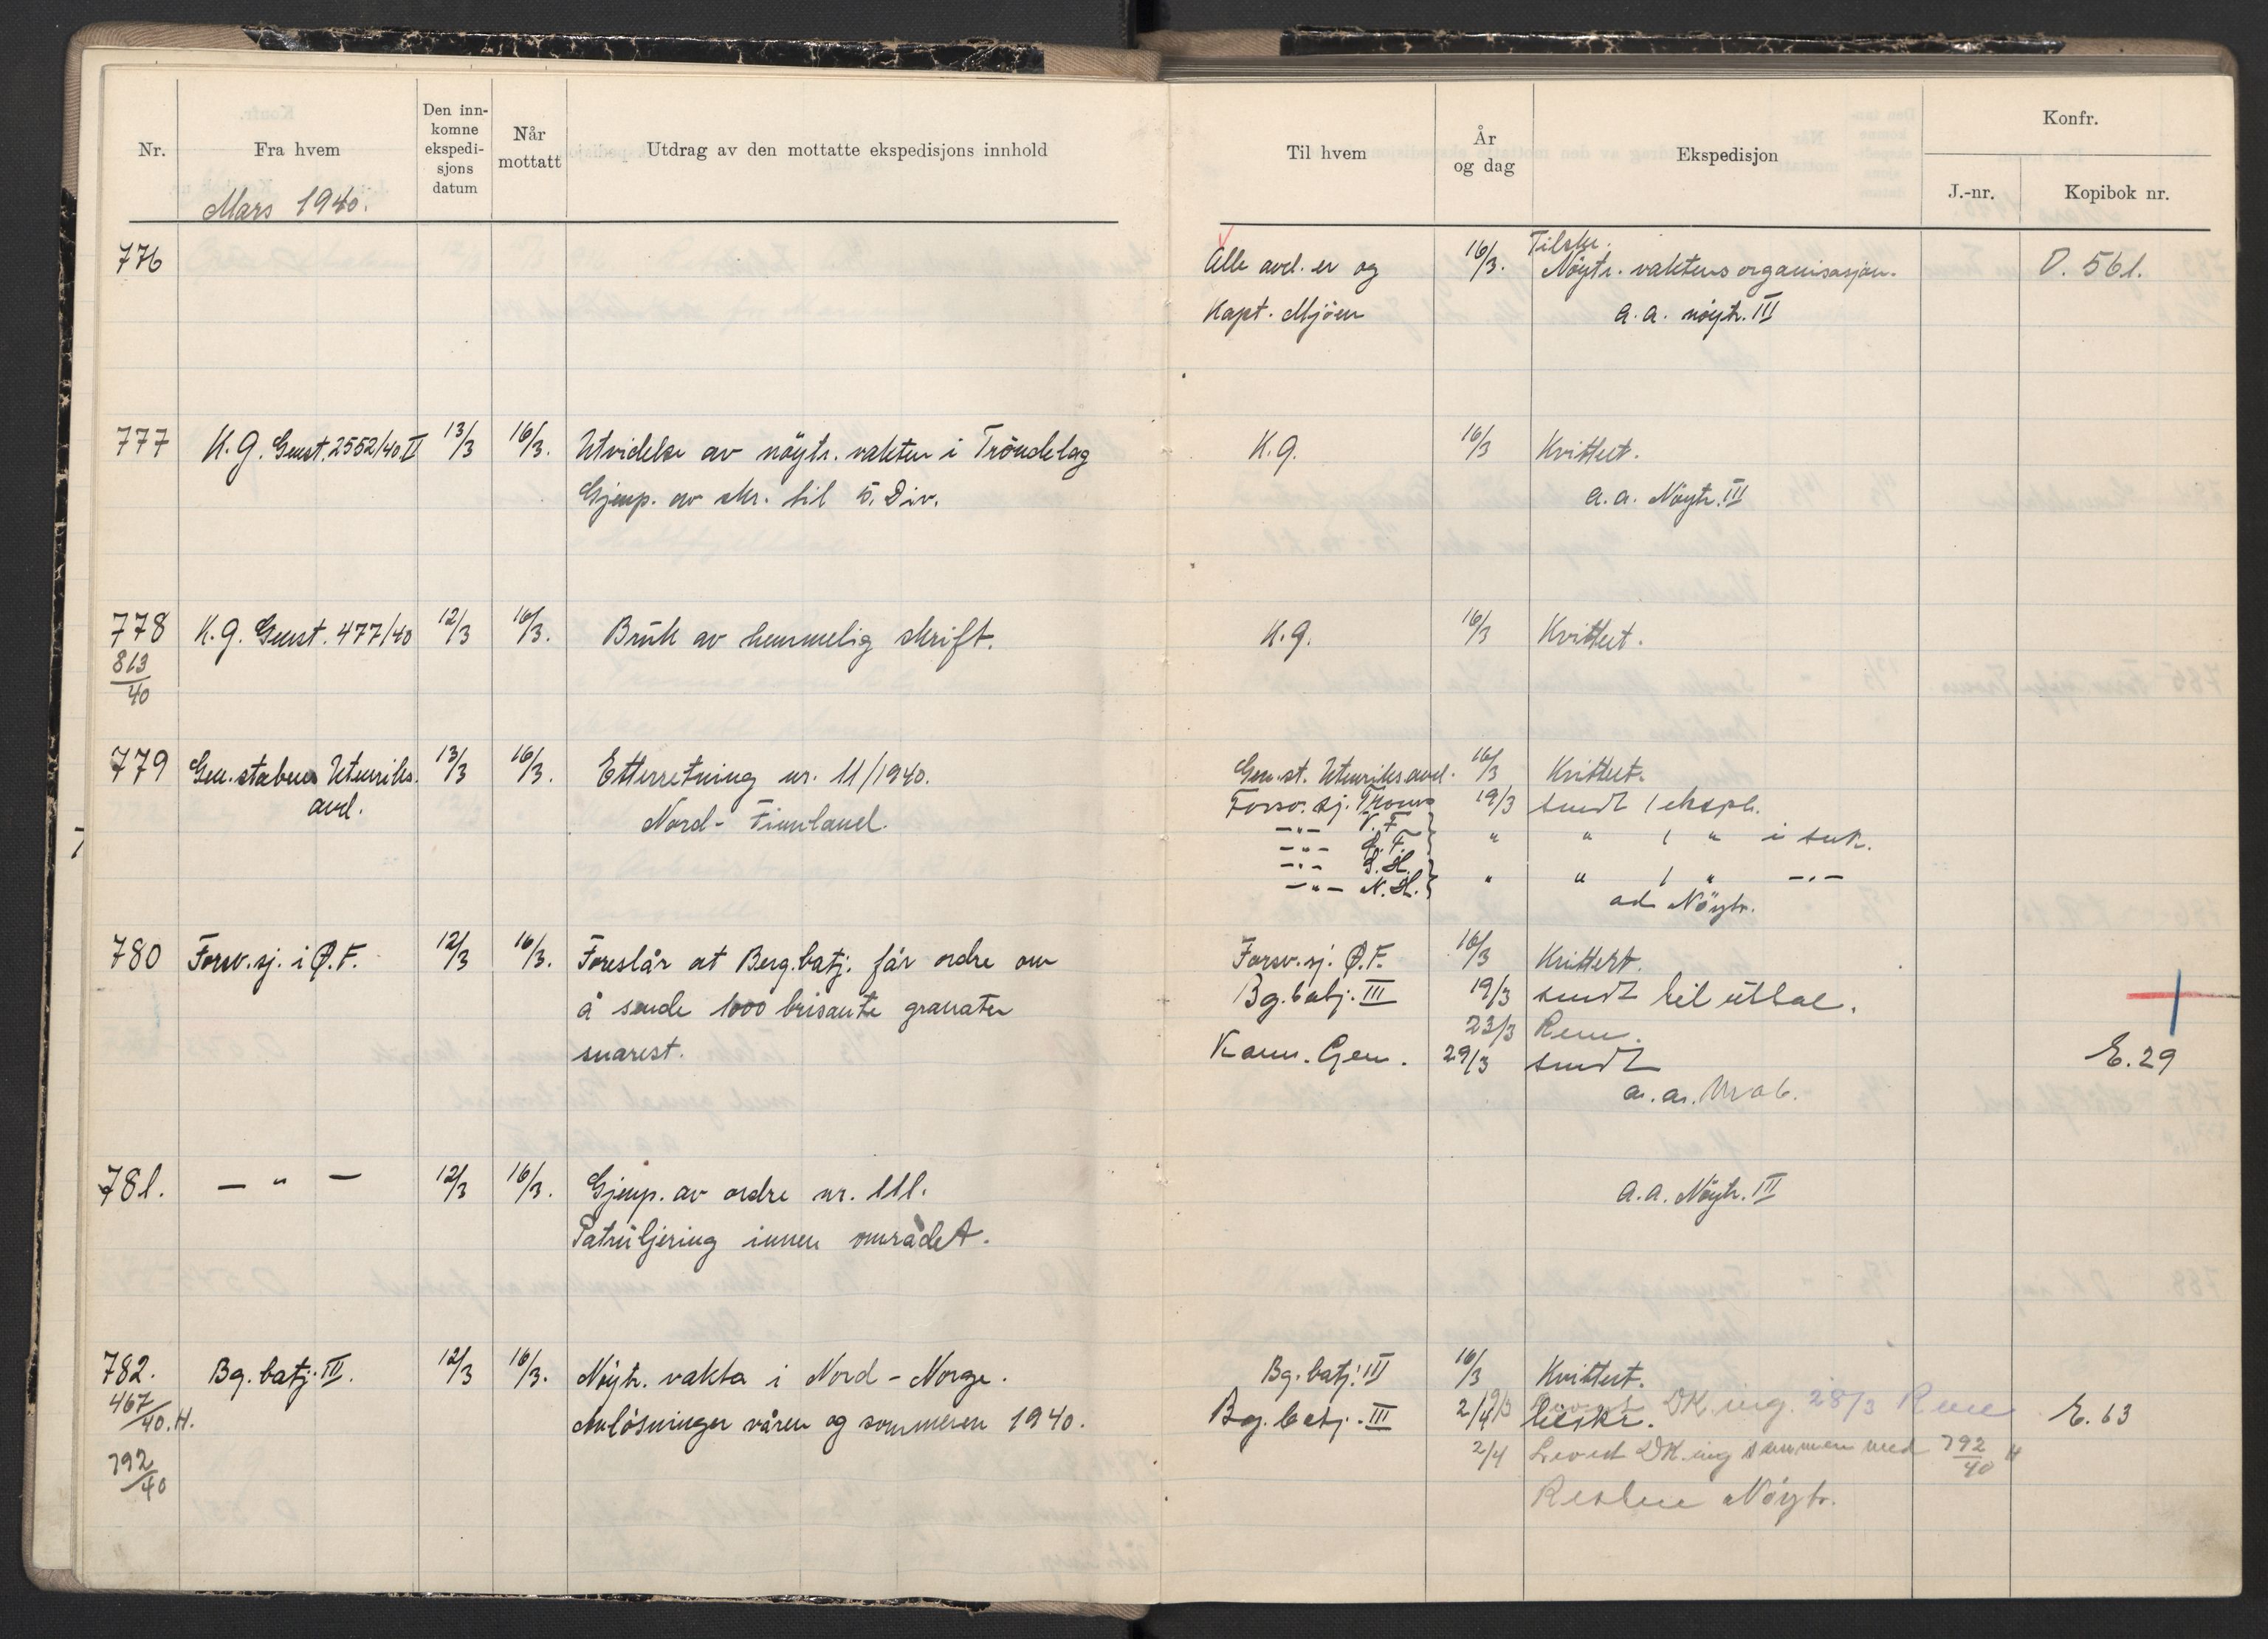 Nr.
Fra hvem
Den inn-
komne
ekspedi-
sjons
datum
Når
mottatt
Utdrag av den mottatte ekspedisjons innhold
Mars 1940.
Til hvem
År
og dag
Ekspedisjon
Konfr.
J.-nr.
Kopibok nr.
776 Alle avd. er og 16/3. Tilskr. Nöytr. vaktens organisasjon. D. 561.
Kapt. Mjöen a.a. nöytr. III
777 K.G. Genst. 2552/40 II 13/3 16/3. Utvidelse av nöytr. vakten i Tröndelag K.G. 16/3 Kvittert.
Gjenp. av skr. til 5. Div. a.a. Nöytr. III
778 K.G. Genst. 477/40 12/3 16/3. Bruk av hemmelig skrift. K.G. 16/3 Kvittert.
813/40
779 Gen.stabens Utenriks. 13/3 16/3. Etterretning nr. 11/1940. Gen.st. Utenriks.avd. 16/3 Kvittert.
avd. Nord-Finnland. Forsv.sj. Troms 19/3 sendt 1 ekspl.
-"- V.F. } " " 1 " i suk.
-"- Ø.F.
-"- S.H. } " " 1 " -"-
-"- N.H.
ad Nöytr.
780 Forsv.sj. i Ø.F. 12/3 16/3. Foreslår at Berg.batj. får ordre om Forsv.sj. Ø.F. 16/3 Kvittert.
å sende 1000 brisante granater Bg.batj. III 19/3 sendt til uttal.
23/3 Rem.
snarest. Kom. Gen. 29/3 sendt E. 29
a.a.
781. - " - 12/3 16/3. Gjenp. av ordre nr. 111. a.a. Nöytr. III
Patruljering innen området.
782. Bg. batj. III. 12/3 16/3. Nöytr. vakta i Nord-Norge. Bg. batj. III 16/3 Kvittert.
467/40.H. Avlösninger våren og sommeren 1940. Bg. batj. III 2/4 tilskr. DK.ing. 28/3 Rem E. 63
792/40 2/4 Levert DK.ing sammen med 792/40 H
Nöytr.